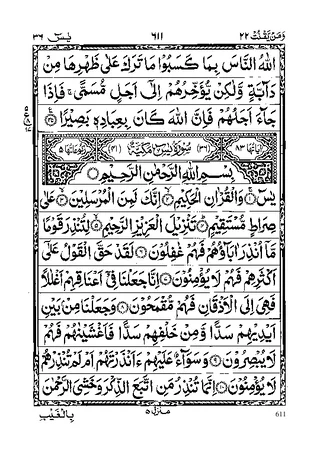 وَمَنْ يَّقْنُتْ ٢٢ ٦١١ يٰسٓ ٣٦
اللّٰهُ النَّاسَ بِمَا كَسَبُوْا مَا تَرَكَ عَلٰى ظَهْرِهَا مِنْ
دَآبَّةٍ وَّلٰكِنْ يُّؤَخِّرُهُمْ اِلٰٓى اَجَلٍ مُّسَمًّى ۚ فَاِذَا
جَآءَ اَجَلُهُمْ فَاِنَّ اللّٰهَ كَانَ بِعِبَادِهٖ بَصِيْرًا ۟
اٰيَاتُهَا ٨٣ (٣٦) سُوْرَةُ يٰسٓ مَكِّيَّةٌ (٤١) رُكُوْعَاتُهَا ٥
بِسْمِ اللّٰهِ الرَّحْمٰنِ الرَّحِيْمِ
يٰسٓ ۚ وَالْقُرْاٰنِ الْحَكِيْمِ ۙ اِنَّكَ لَمِنَ الْمُرْسَلِيْنَ ۙ عَلٰى
صِرَاطٍ مُّسْتَقِيْمٍ ؕ تَنْزِيْلَ الْعَزِيْزِ الرَّحِيْمِ ۙ لِتُنْذِرَ قَوْمًا
مَّآ اُنْذِرَ اٰبَآؤُهُمْ فَهُمْ غٰفِلُوْنَ ۟ لَقَدْ حَقَّ الْقَوْلُ عَلٰٓى
اَكْثَرِهِمْ فَهُمْ لَا يُؤْمِنُوْنَ ۟ اِنَّا جَعَلْنَا فِيْٓ اَعْنَاقِهِمْ اَغْلٰلًا
فَهِيَ اِلَى الْاَذْقَانِ فَهُمْ مُّقْمَحُوْنَ ۟ وَجَعَلْنَا مِنْۢ بَيْنِ
اَيْدِيْهِمْ سَدًّا وَّمِنْ خَلْفِهِمْ سَدًّا فَاَغْشَيْنٰهُمْ فَهُمْ
لَا يُبْصِرُوْنَ ۟ وَسَوَآءٌ عَلَيْهِمْ ءَاَنْذَرْتَهُمْ اَمْ لَمْ تُنْذِرْهُمْ
لَا يُؤْمِنُوْنَ ۟ اِنَّمَا تُنْذِرُ مَنِ اتَّبَعَ الذِّكْرَ وَخَشِيَ الرَّحْمٰنَ
بِالْغَيْبِ منزل ٥ 611